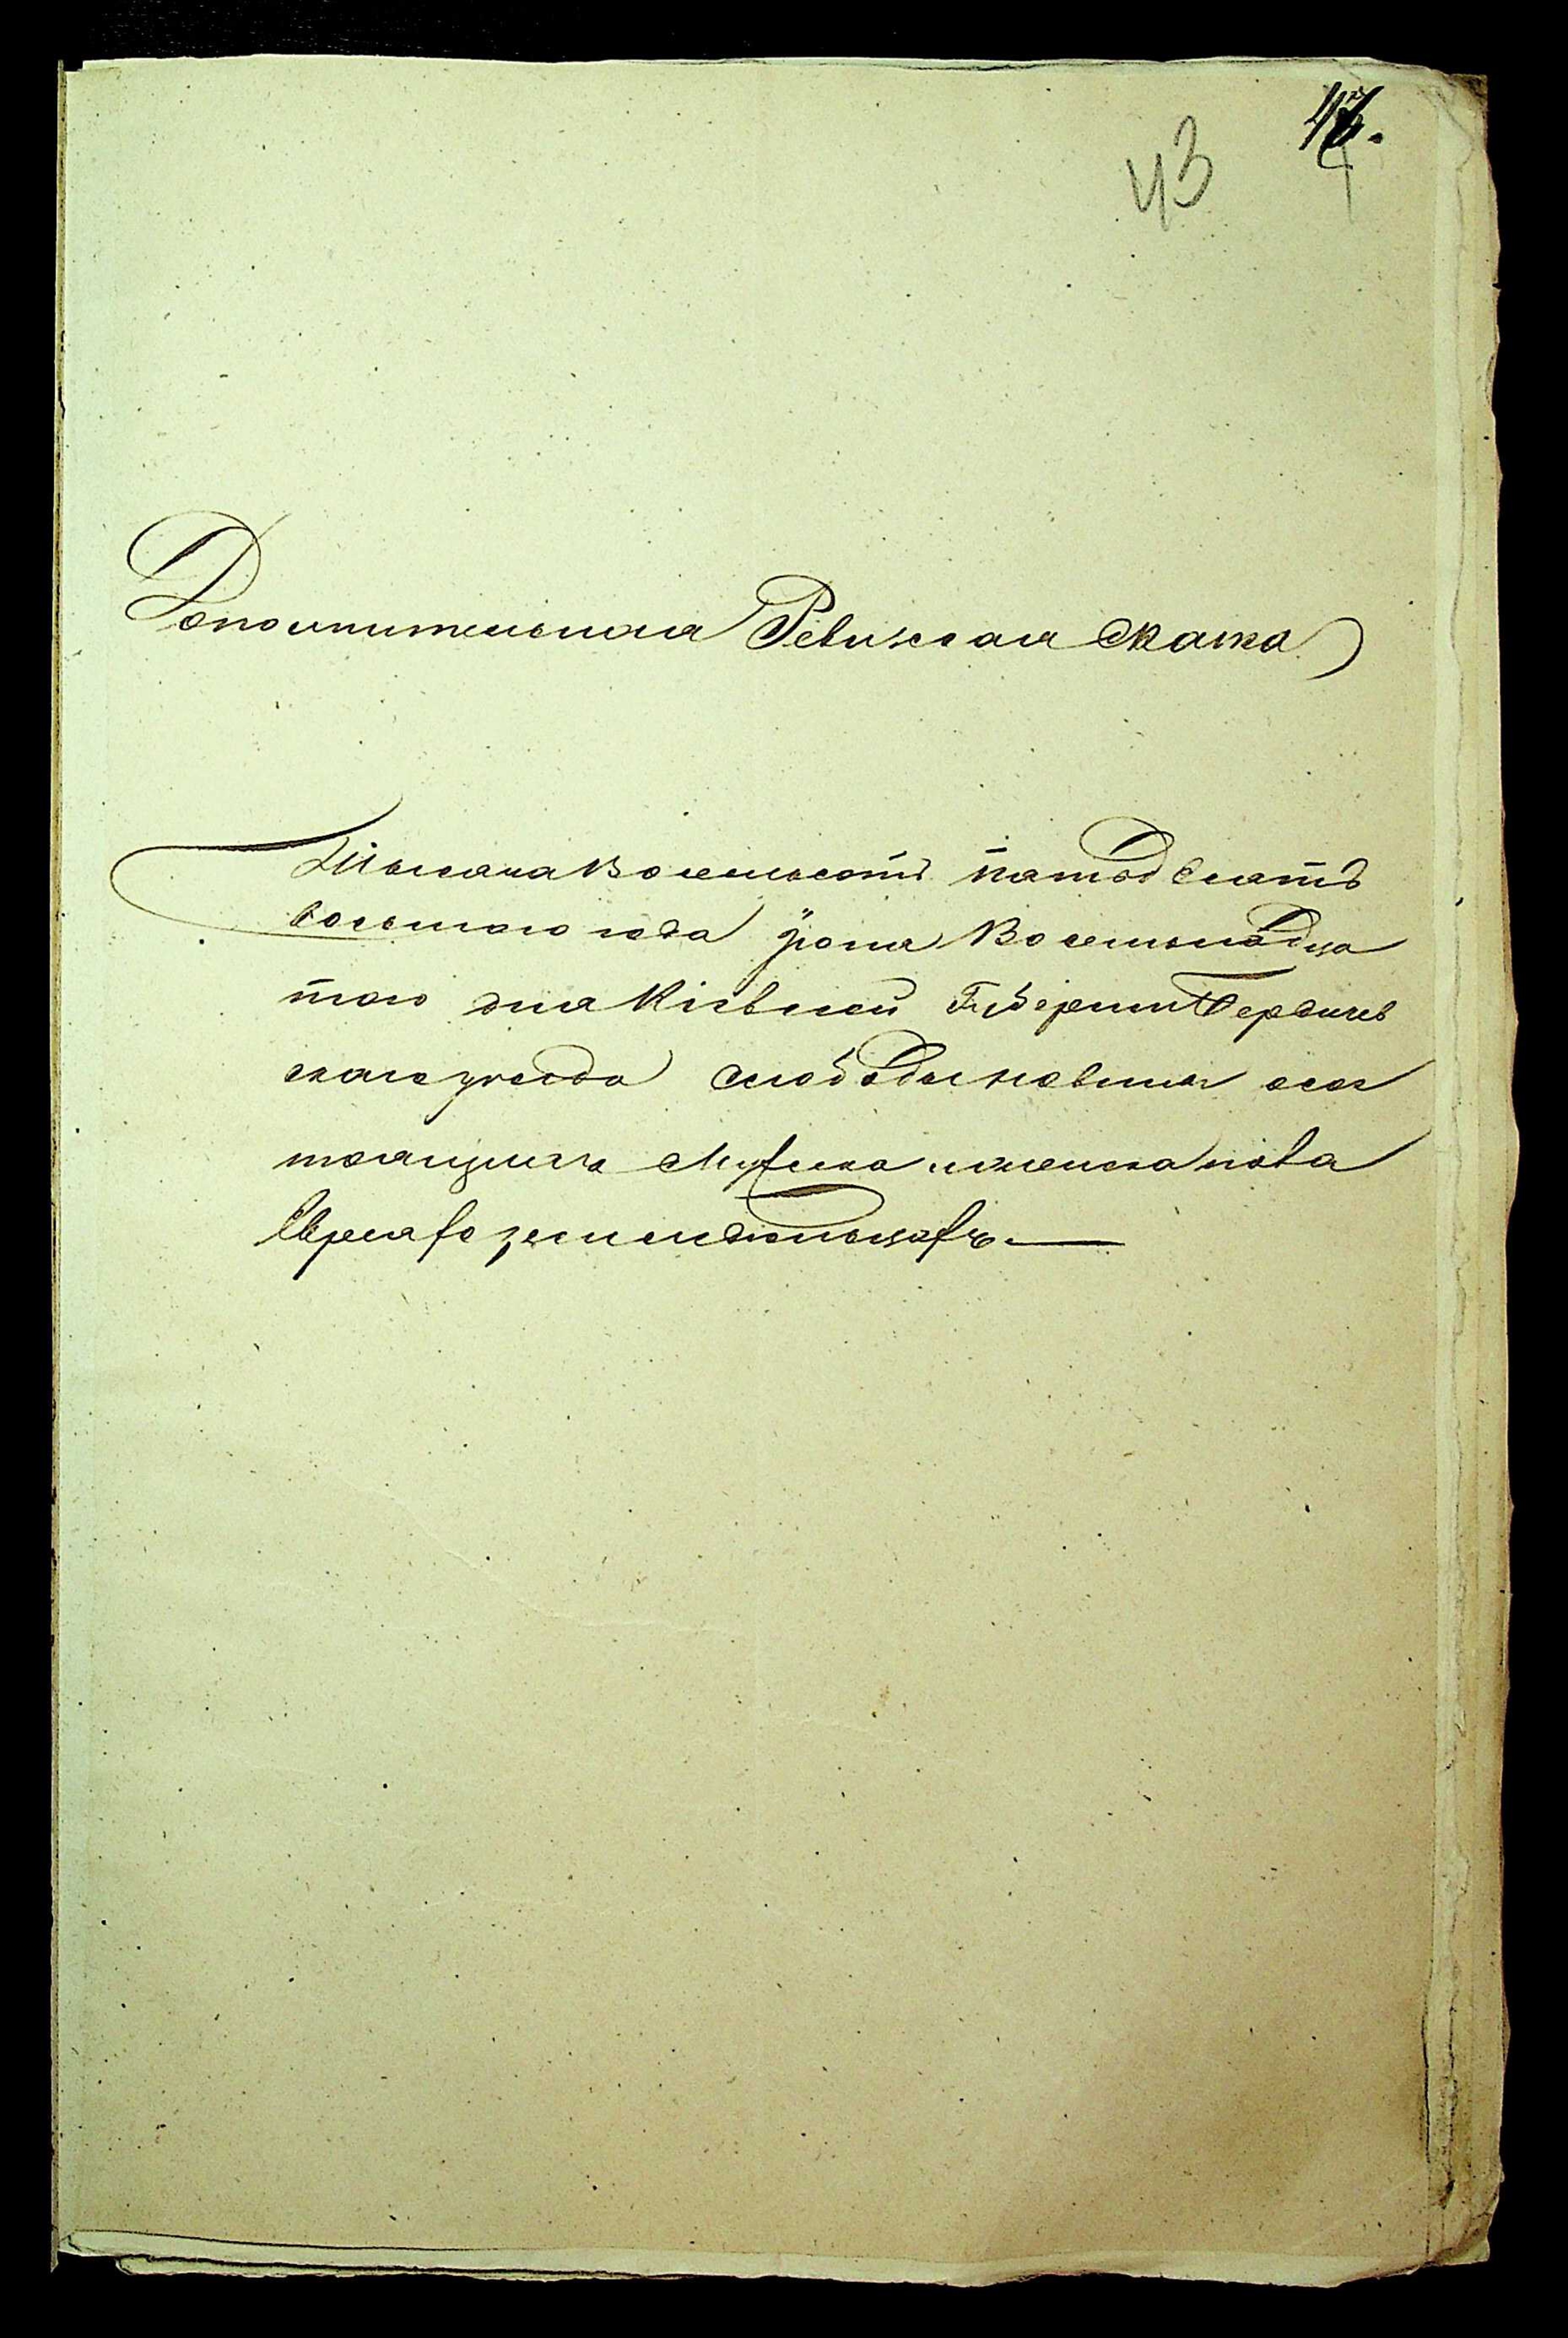 43
Дополнительная Ревизская Сказка
Тысяча Восемьсотъ пятьдесятъ
восьмаго года Іюня Восемьнадца
таго дня Кіевской Губерніи Бердичев
скаго уезда слободы новины осос
тоящихъ Мужска и женска пола
Евреяхъ земледельцахъ